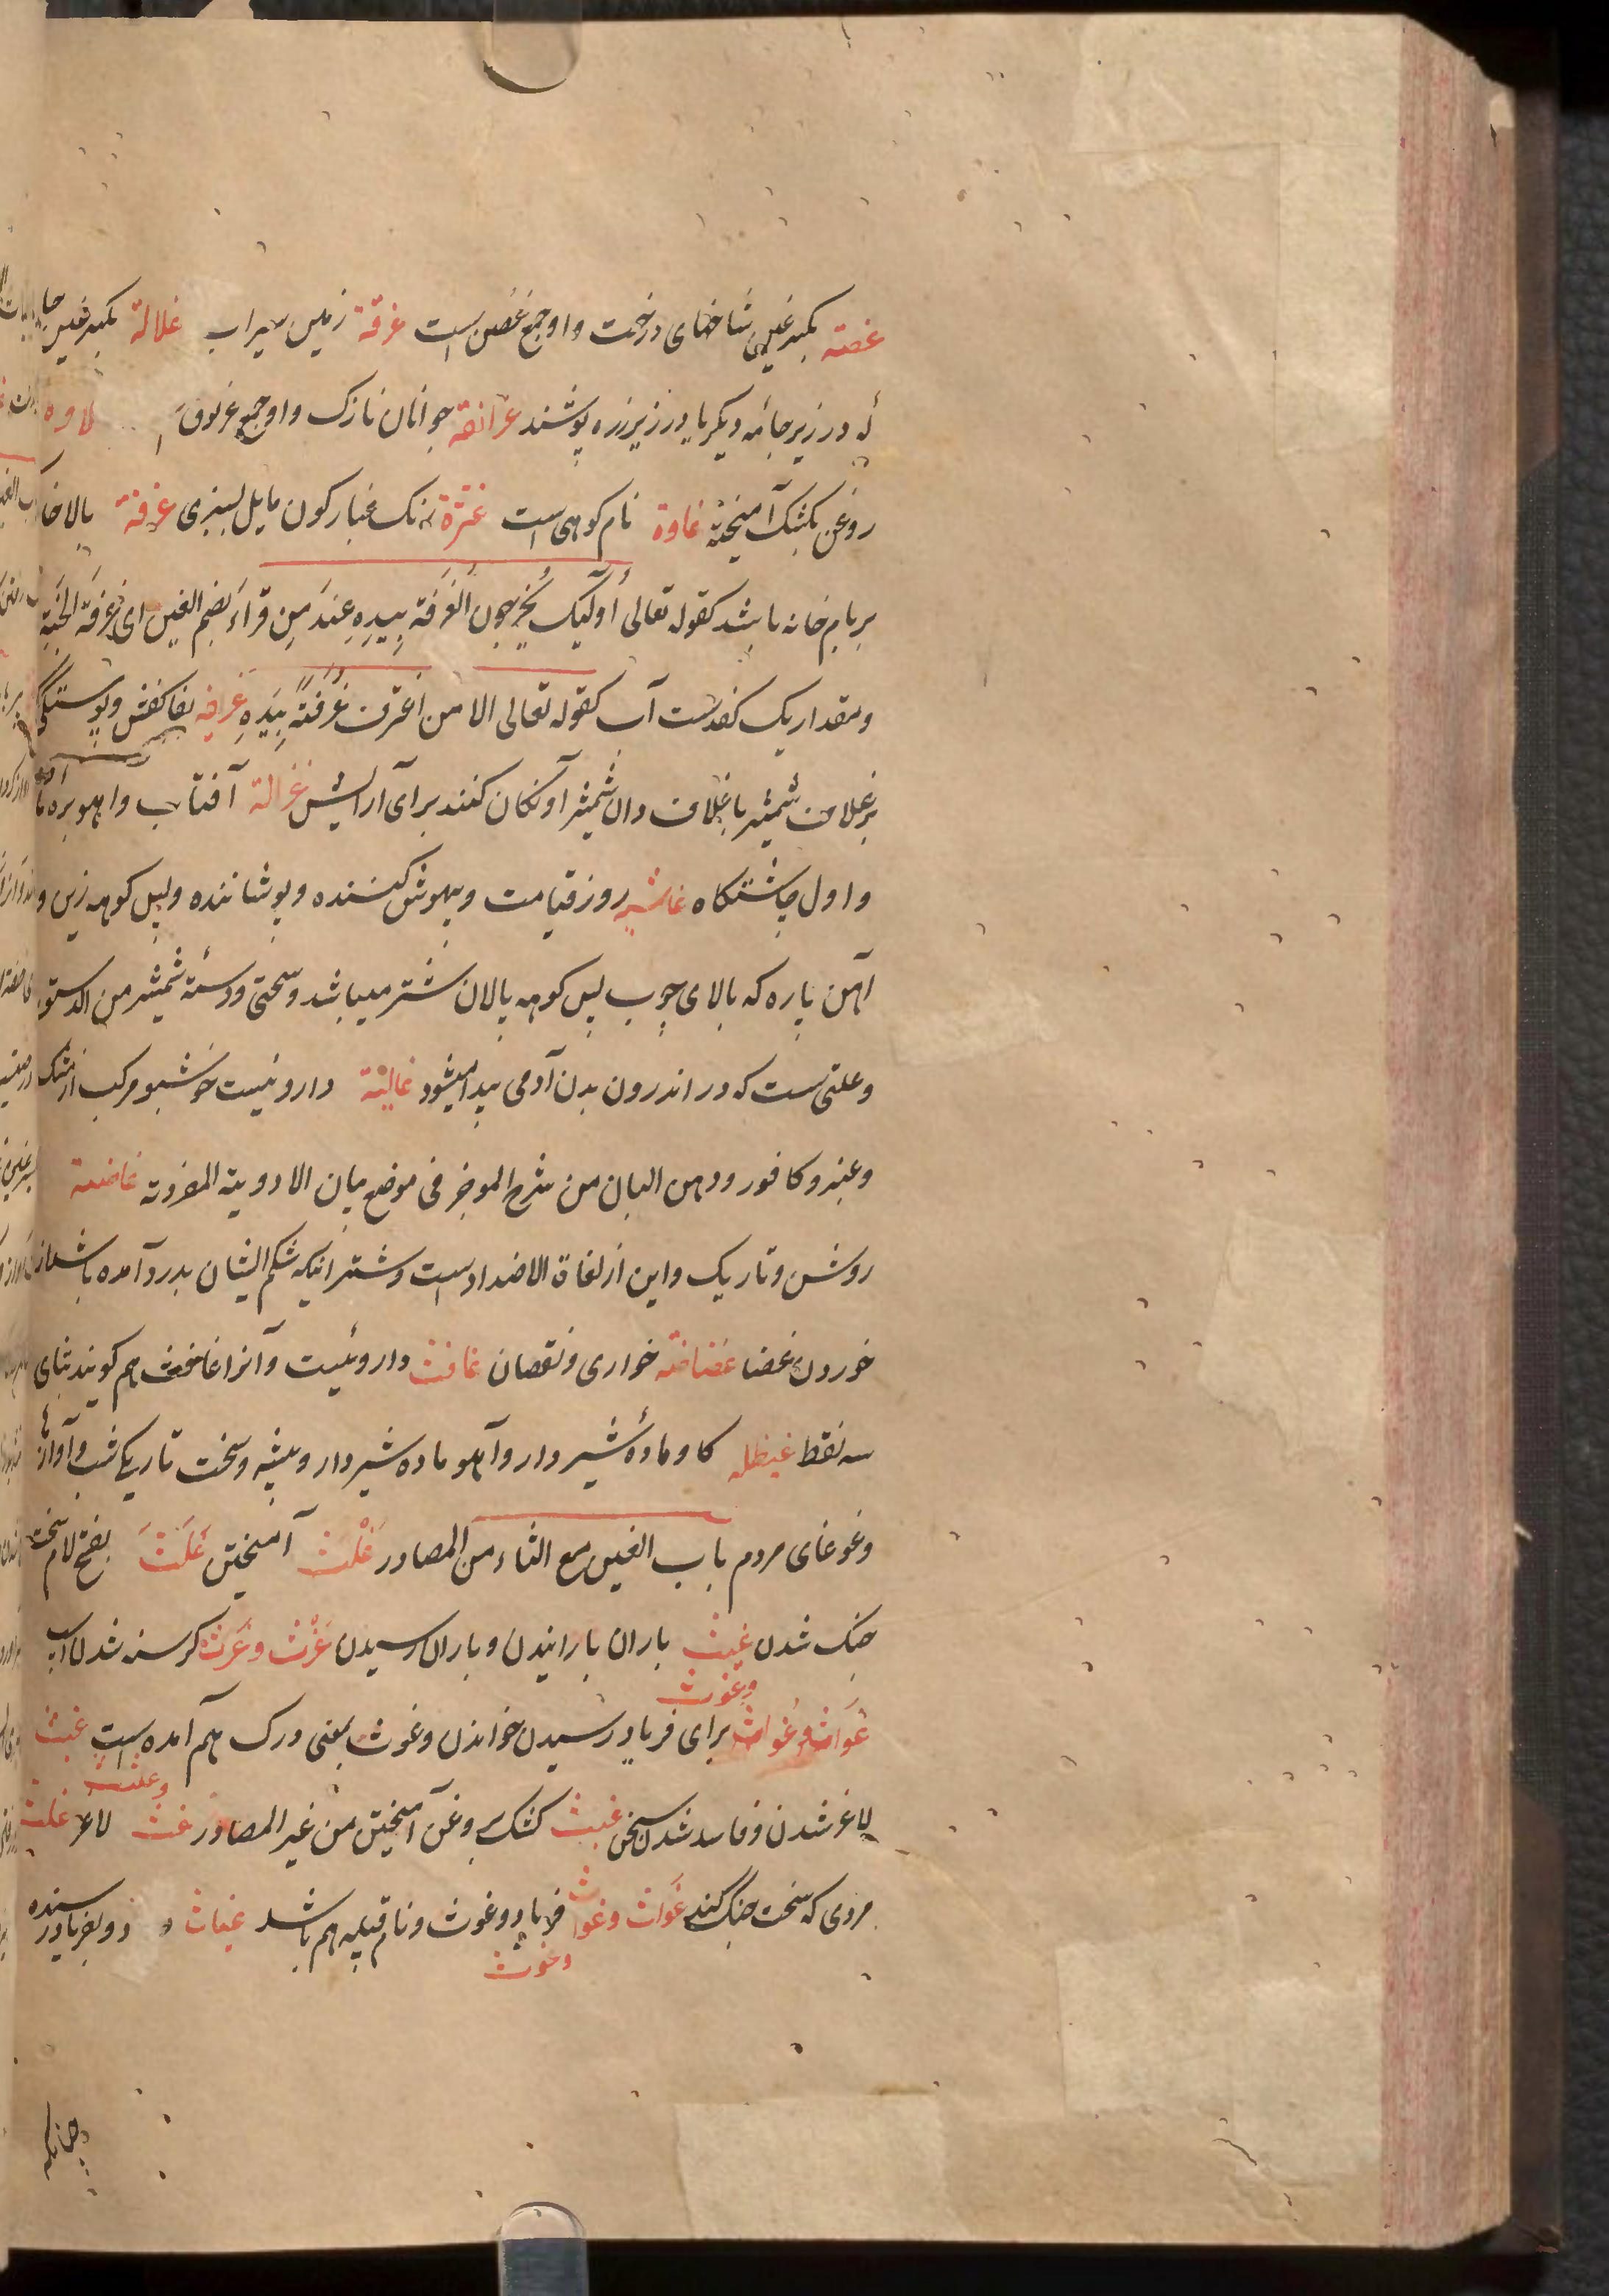 غصنه بکسر غین شاخهای درخت و او جمع غصن است غرقة زمین سیراب غلالة بکسر غین جا
ئه در زیر جامه دیگر یا در زیر زره پوشند غرانقة جوانان نازک و او جمع غرنوق
روغن بکشک آمیخته غاوة نام کوهی است غثرة رنک غبارکون مایل بسبزی غرفة بالاخا
بر بام خانه باشد کقوله تعالی أولئک یخرجون الغرفة بیده عند من قراء بضم الغین ای غرفة الجنة
و مقدار یک کفدست آب کقوله تعالی الا من اغترف غرفة بیده غریفه کفش و پوستکی
بر غلاف شمشیر با غلاف دان شمشیر آونکان کنند برای آرایش غزالة آفتاب و اهوبره ماده
و اول چاشتکاه غاشیه روز قیامت و بیهوش کننده و پوشاننده و پس کوهه زین و
آهن پاره که بالای چوب پس کوهه پالان شتر میباشد و سختی و دستهٔ شمشیر من الدستور
و علتی ست که در اندرون بدن آدمی پیدا میشود غالیة داروئیست خوشبو مرکب از مشک
و عنبر و کافور و دهن البان من شرح الموجز فی موضع بیان الادویة المفردة غاضیة
روشن و تاریک و این از لغاة الاضداد است و شترانیکه شکم ایشان بدرد آمده باشد از
خوردن غضا غضاضة خواری و نقصان غافث داروئیست و آنرا غافث هم کویند بثای
سه نقط غیطله کاو مادهٔ شیردار و آهو ماده شیردار و بیشه و سخت تاریکی شب و آوازها
و غوغای مردم باب الغین مع الثاء من المصادر غلث آمیختن غلث بفتح لام سخت
جنک شدن غیث باران بارانیدن و باران رسیدن غرث و غرث کرسنه شدن
غواث و غواث و غوث برای فریاد رسیدن خواندن و غوث بمعنی درک هم آمده است غثث
لاغر شدن و فاسد شدن سخن غبث کشک بروغن آمیختن من غیر المصادر غث لاغر غلث و غلث
مردی که سخت جنک کند غواث و غواث و غوث فریاد و غوث و نام قبیله هم باشد غیاث و دو بفریاد رسنده
چنانکه